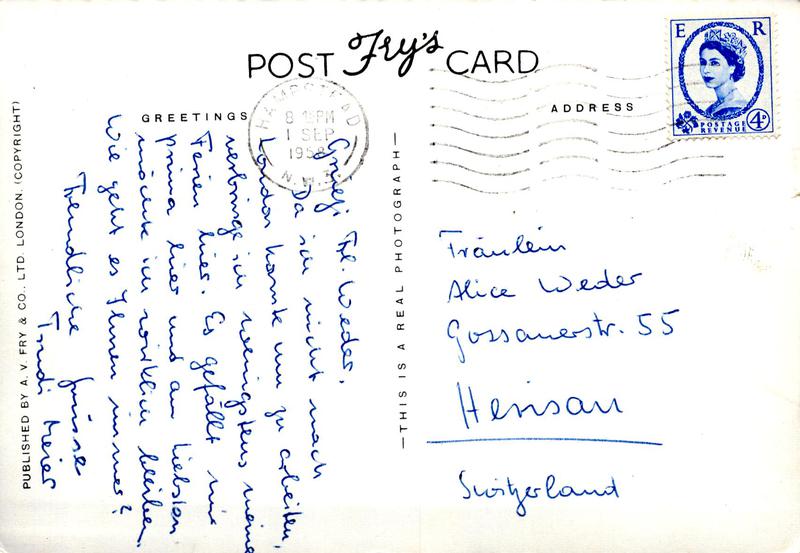 POST Fry's CARD
E R
POSTAGE
REVENUE
4D
HAMPSTEAD
PM
1 SEP
1958
N.W.3.
GREETINGS
ADDRESS
Grüezi Frl. Weder,
Da ich nicht nach
London konnte um zu arbeiten,
verbringe ich wenigstens meine
Ferien hier. Es gefällt mir
prima hier und am liebsten
möchte ich wirklich bleiben.
Wie geht es Ihnen immer?
Freundliche Grüsse
Trudi Meier
PUBLISHED BY A. V. FRY & CO., LTD. LONDON. (COPYRIGHT)
—THIS IS A REAL PHOTOGRAPH—
Fräulein
Alice Weder
Gossauerstr. 55
Herisau
Switzerland